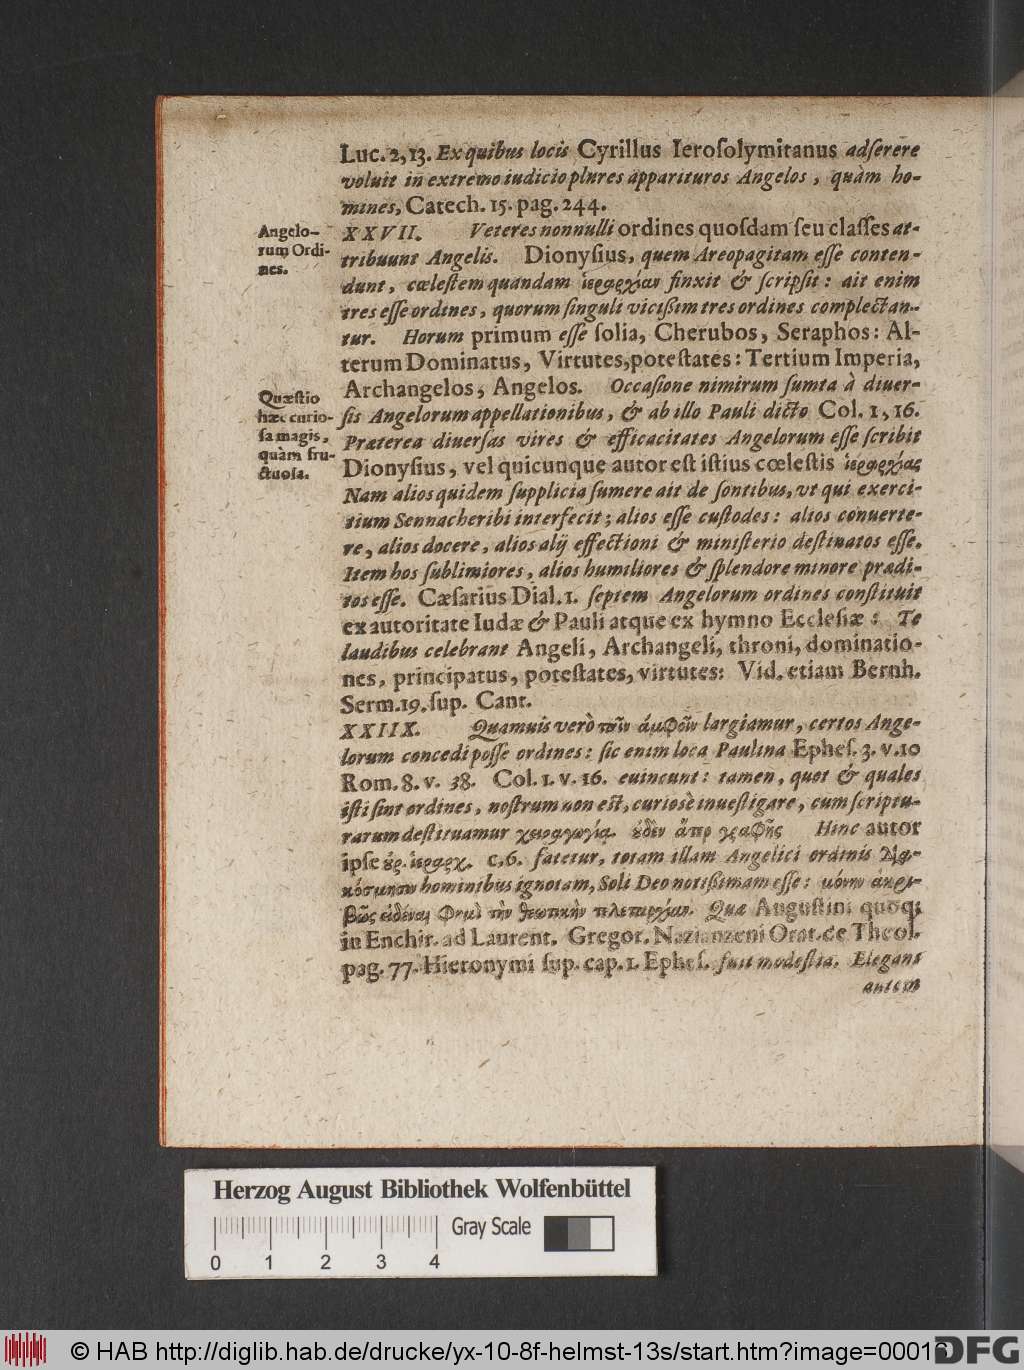 Luc. 2, 13. Ex quibus locis Cyrillus Ierosolymitanus adserere
voluit in extremo iudicio plures apparituros Angelos, quàm ho-
mines, Catech. 15. pag. 244.
Angelo-
rum Ordi-
nes.
XXVII. Veteres nonnulli ordines quosdam seu classes at-
tribuunt Angelis. Dionysius, quem Areopagitam esse conten-
dunt, cœlestem quandam ἱεραρχίαν finxit & scripsit: ait enim
tres esse ordines, quorum singuli vicißim tres ordines complectan-
tur. Horum primum esse solia, Cherubos, Seraphos: Al-
terum Dominatus, Virtutes, potestates: Tertium Imperia,
Archangelos, Angelos. Occasione nimirum sumta à diuer-
Quæstio
hæc curio-
sa magis,
quàm fru-
ctuosa.
sis Angelorum appellationibus, & ab illo Pauli dicto Col. 1, 16.
Præterea diuersas vires & efficacitates Angelorum esse scribit
Dionysius, vel quicunque autor est istius cœlestis ἱεραρχίας
Nam alios quidem supplicia sumere ait de sontibus, vt qui exerci-
tium Sennacheribi interfecit; alios esse custodes: alios conuerte-
re, alios docere, alios alij effectioni & ministerio destinatos esse.
Item hos sublimiores, alios humiliores & splendore minore prædi-
tos esse. Cæsarius Dial. 1. septem Angelorum ordines constituit
ex autoritate Iudæ & Pauli atque ex hymno Ecclesiæ: Te
laudibus celebrant Angeli, Archangeli, throni, dominatio-
nes, principatus, potestates, virtutes: Vid. etiam Bernh.
Serm. 19. sup. Cant.
XXIIX. Quamuis verò largiamur, certos Ange-
lorum concedi posse ordines: sic enim loca Paulina Ephes. 3. v. 10
Rom. 8. v. 38. Col. 1. v. 16. euincunt: tamen, quot & quales
isti sint ordines, nostrum non est, curiosè inuestigare, cum scriptu-
rarum destituamur χειραγωγίᾳ. Hinc autor
ipse ἱεραρχ. c. 6. fatetur, totam illam Angelici ordinis
hominibus ignotam, Soli Deo notißimam esse:
Quæ Augustini quoq;
in Enchir. ad Laurent. Gregor. Nazianzeni Orat. de Theol.
pag. 77. Hieronymi sup. cap. 1. Ephes. fuit modestia. Elegans
autem
Herzog August Bibliothek Wolfenbüttel
Gray Scale
0 1 2 3 4
© HAB http://diglib.hab.de/drucke/yx-10-8f-helmst-13s/start.htm?image=00016
DFG